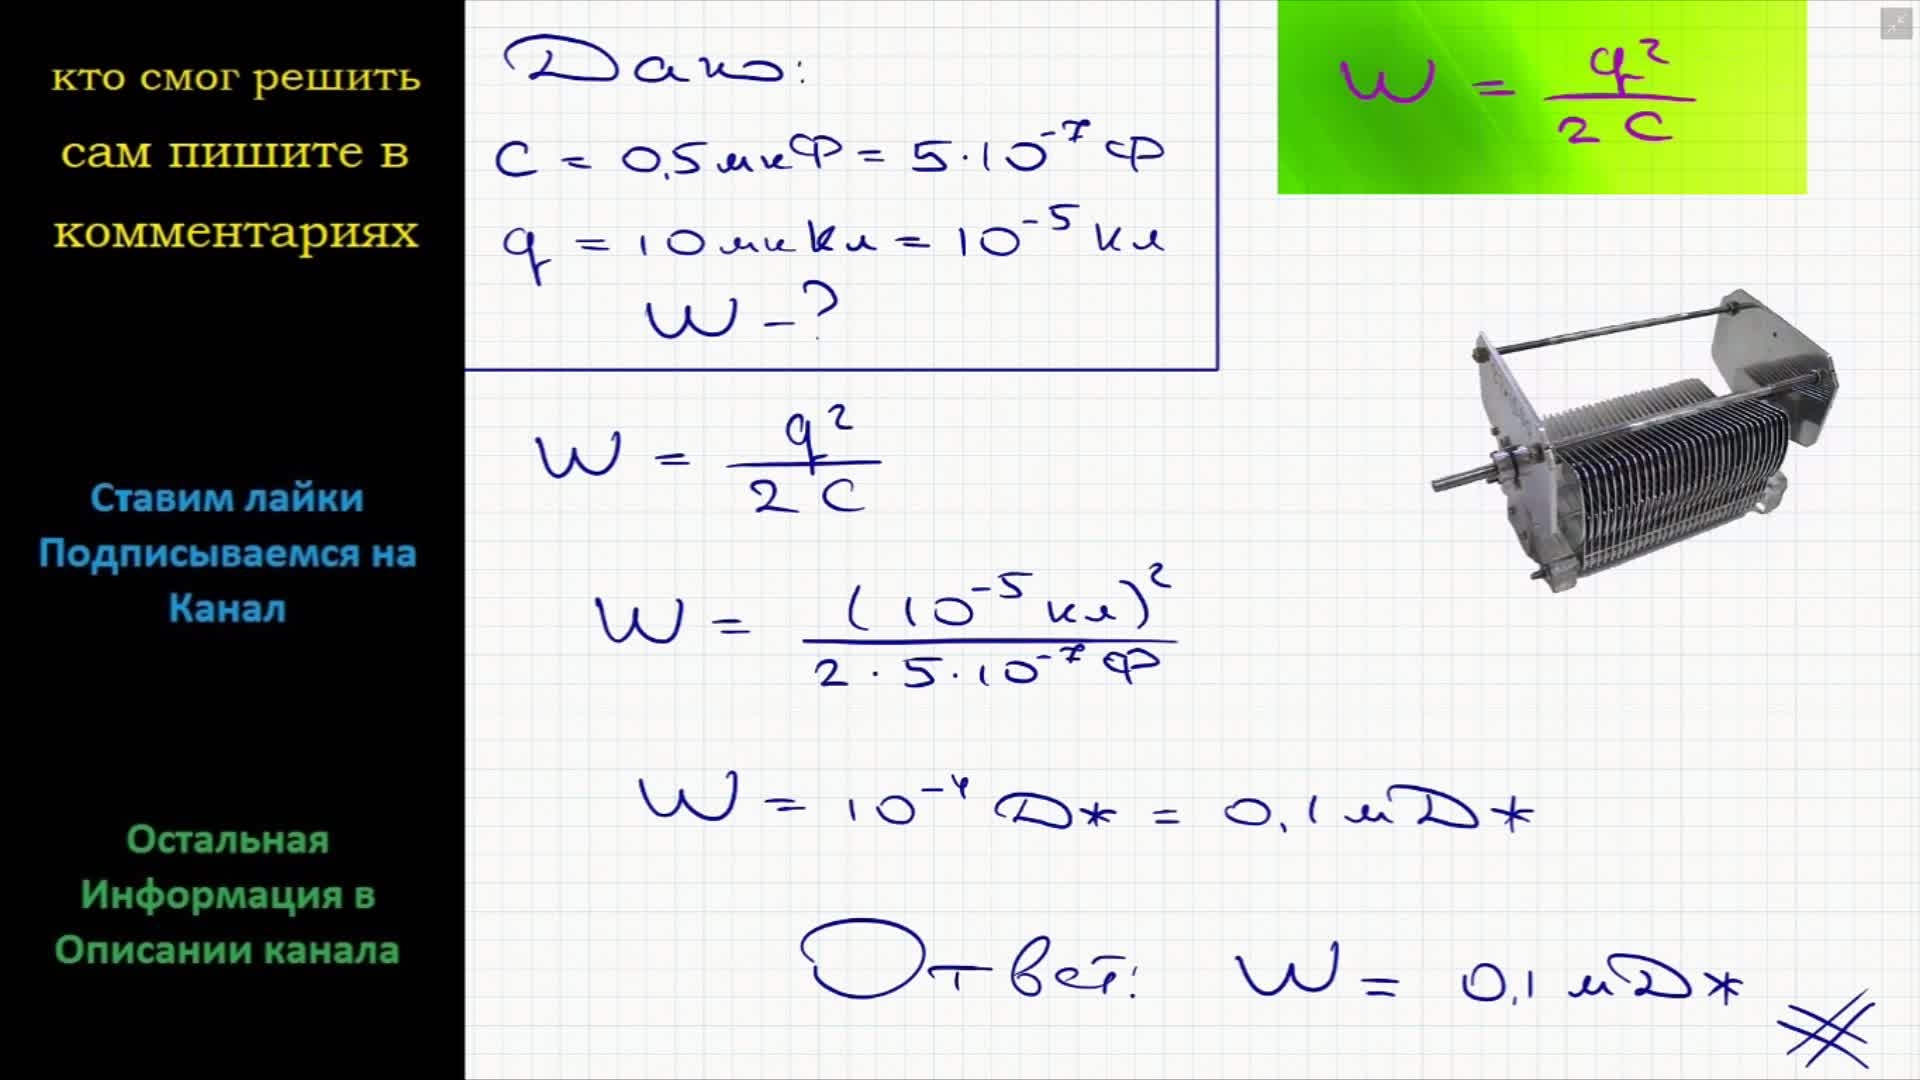 кто смог решить
сам пишите в
комментариях
Ставим лайки
Подписываемся на
Канал
Остальная
Информация в
Описании канала
Дано:
C = 0,5 мкФ = 5·10⁻⁷ Ф
q = 10 мкКл = 10⁻⁵ Кл
W - ?
W = q² / 2C
W = q² / 2C
W = (10⁻⁵ Кл)² / 2·5·10⁻⁷ Ф
W = 10⁻⁴ Дж = 0,1 мДж
Ответ: W = 0,1 мДж